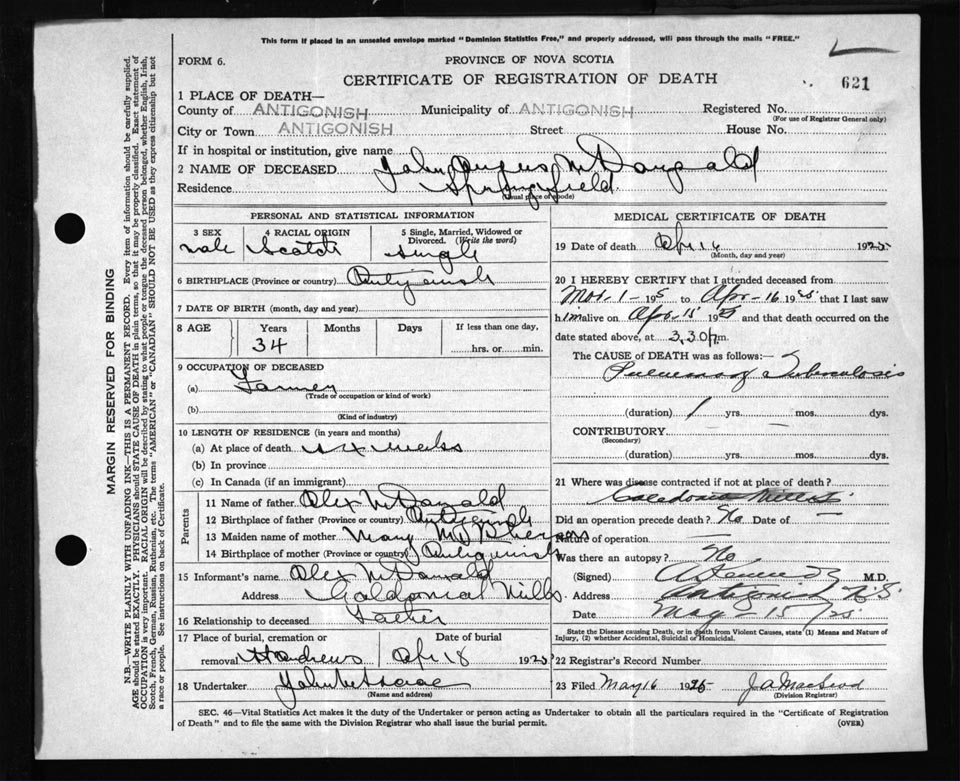 This form if placed in an unsealed envelope marked "Dominion Statistics Free," and properly addressed, will pass through the mails "FREE."
FORM 6.
PROVINCE OF NOVA SCOTIA
CERTIFICATE OF REGISTRATION OF DEATH
621
1 PLACE OF DEATH—
County of ANTIGONISH Municipality of ANTIGONISH Registered No.
(For use of Registrar General only)
City or Town ANTIGONISH Street House No.
If in hospital or institution, give name
2 NAME OF DECEASED John Angus McDonald
Residence Springfield
(Usual place of abode)
PERSONAL AND STATISTICAL INFORMATION
3 SEX 4 RACIAL ORIGIN 5 Single, Married, Widowed or Divorced. (Write the word)
Male Scotch Single
6 BIRTHPLACE (Province or country) Antigonish
7 DATE OF BIRTH (month, day and year)
8 AGE Years Months Days If less than one day,
34 hrs. or min.
9 OCCUPATION OF DECEASED
(a) Farmer
(Trade or occupation or kind of work)
(b)
(Kind of industry)
10 LENGTH OF RESIDENCE (in years and months)
(a) At place of death weeks
(b) In province
(c) In Canada (if an immigrant)
Parents
11 Name of father Alex McDonald
12 Birthplace of father (Province or country) Antigonish
13 Maiden name of mother Mary
14 Birthplace of mother (Province or country) Antigonish
15 Informant's name Alex McDonald
Address Caldonia Mills
16 Relationship to deceased Father
17 Place of burial, cremation or removal St Andrews Date of burial Apr 18 1925
18 Undertaker John
(Name and address)
MEDICAL CERTIFICATE OF DEATH
19 Date of death Apr 16 1925
(Month, day and year)
20 I HEREBY CERTIFY that I attended deceased from
Mar-1- 1925 to Apr-16 1925 that I last saw
him alive on Apr-15 1925 and that death occurred on the
date stated above, at 3.30 p.m.
The CAUSE of DEATH was as follows:—
Pulmonary Tuberculosis
(duration) 1 yrs. mos. dys.
CONTRIBUTORY
(Secondary)
(duration) yrs. mos. dys.
21 Where was disease contracted if not at place of death?
Caledonia Mills
Did an operation precede death? No Date of —
Nature of operation —
Was there an autopsy? No
(Signed) M.D.
Address Antigonish N.S.
Date May 15/25
State the Disease causing Death, or in death from Violent Causes, state (1) Means and Nature of Injury, (2) whether Accidental, Suicidal or Homicidal.
22 Registrar's Record Number
23 Filed May 16 1925 J. A. MacLeod
(Division Registrar)
SEC. 46—Vital Statistics Act makes it the duty of the Undertaker or person acting as Undertaker to obtain all the particulars required in the "Certificate of Registration
of Death" and to file the same with the Division Registrar who shall issue the burial permit.
(OVER)
MARGIN RESERVED FOR BINDING
N.B.—WRITE PLAINLY WITH UNFADING INK—THIS IS A PERMANENT RECORD. Every item of information should be carefully supplied.
AGE should be stated EXACTLY. PHYSICIANS should STATE CAUSE OF DEATH in plain terms, so that it may be properly classified. Exact statement of
OCCUPATION is very important. RACIAL ORIGIN will be described by stating to what people or tongue the deceased person belonged, whether English, Irish,
Scotch, French, German, Russian, Ruthenian, etc. The terms "AMERICAN" or "CANADIAN" SHOULD NOT BE USED as they express citizenship but not
a race or people. See instructions on back of Certificate.